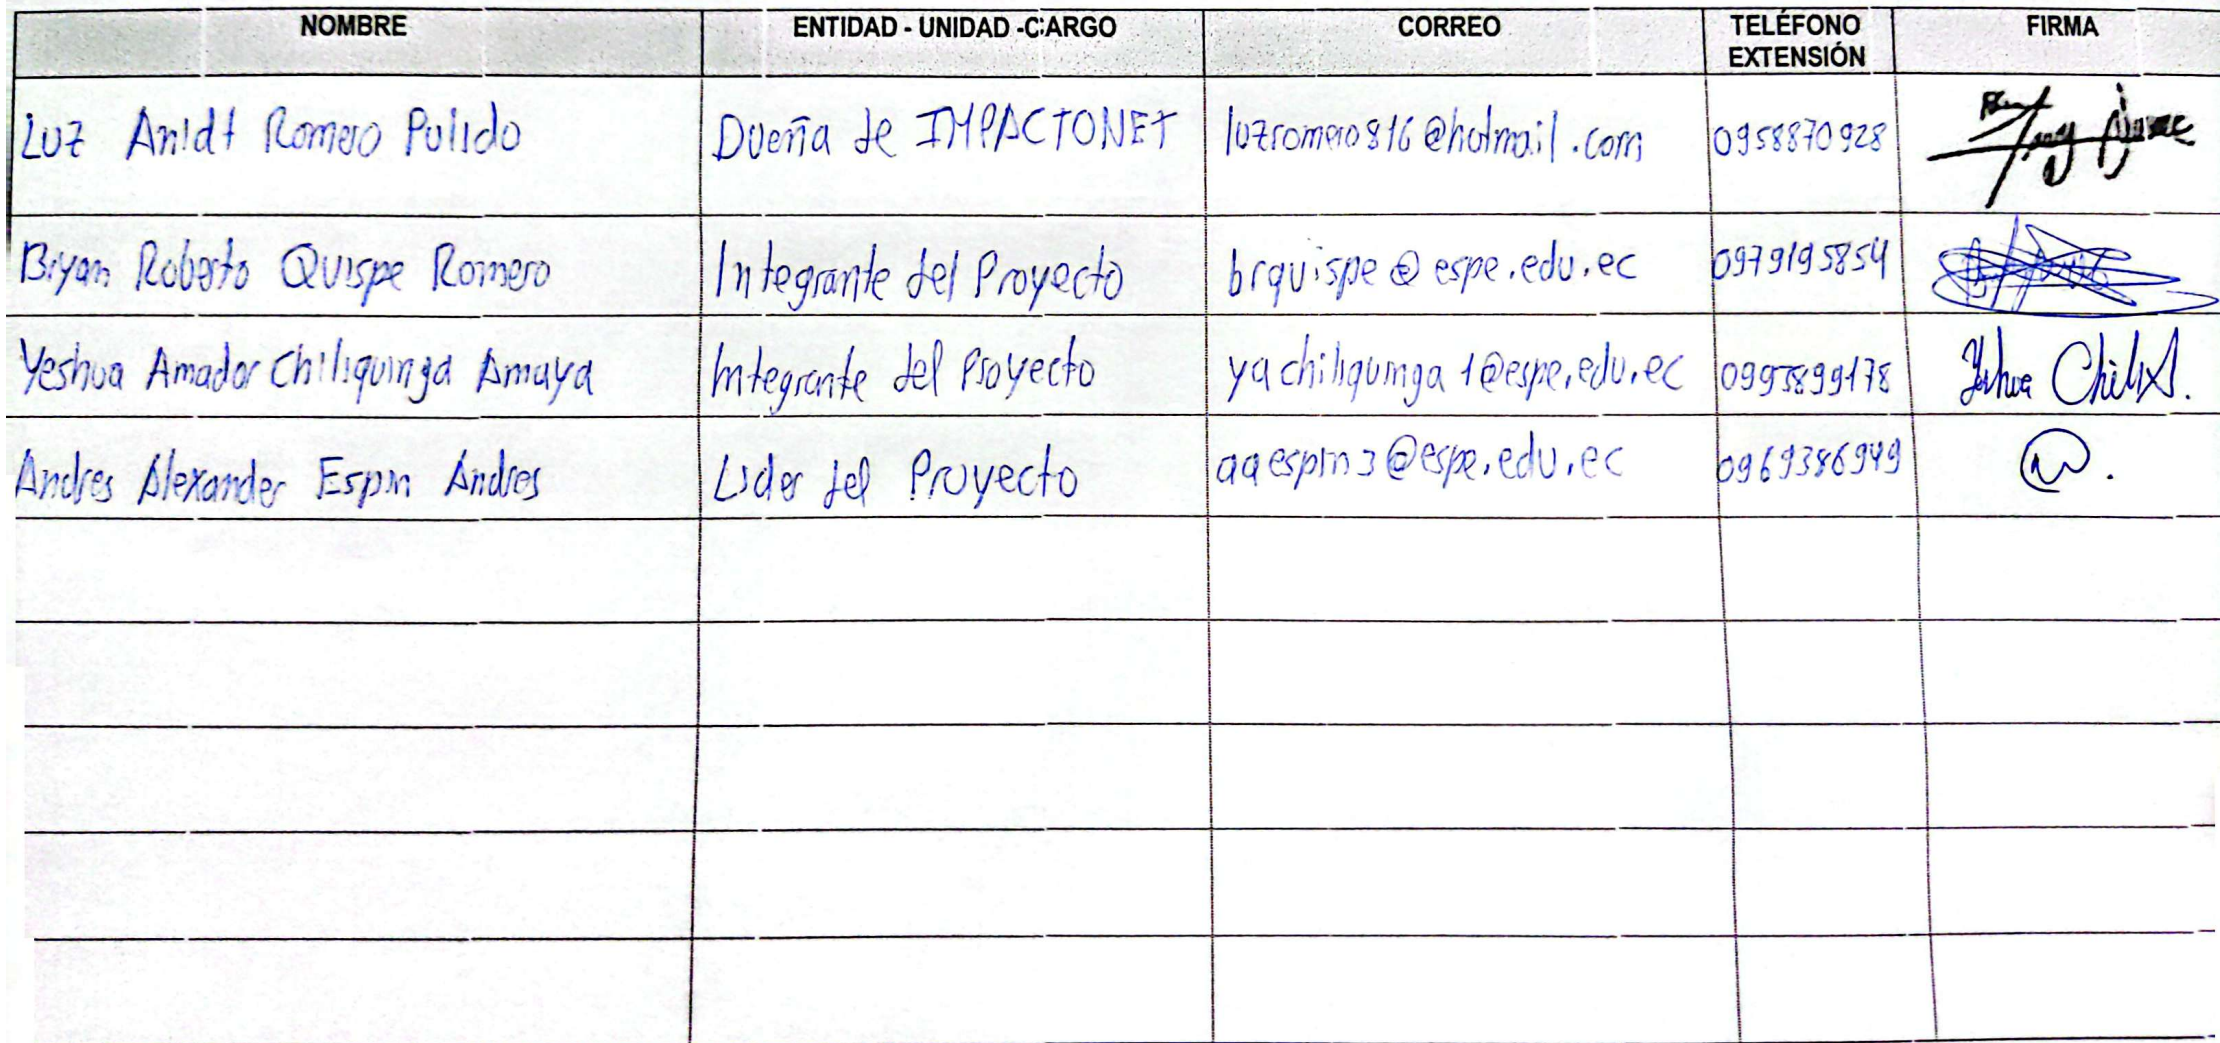 NOMBRE ENTIDAD - UNIDAD -CARGO CORREO TELÉFONO EXTENSIÓN FIRMA
Luz Anidt Romero Pulido Dueña de IMPACTONET luzromero816@hotmail.com 0958870928
Bryan Roberto Quispe Romero Integrante del Proyecto brquispe@espe.edu.ec 0979195854
Yeshua Amador Chiliquinga Amaya Integrante del Proyecto yachiliquinga1@espe.edu.ec 0995899178
Andres Alexander Espin Andres Lider del Proyecto aaespin3@espe.edu.ec 0969386949